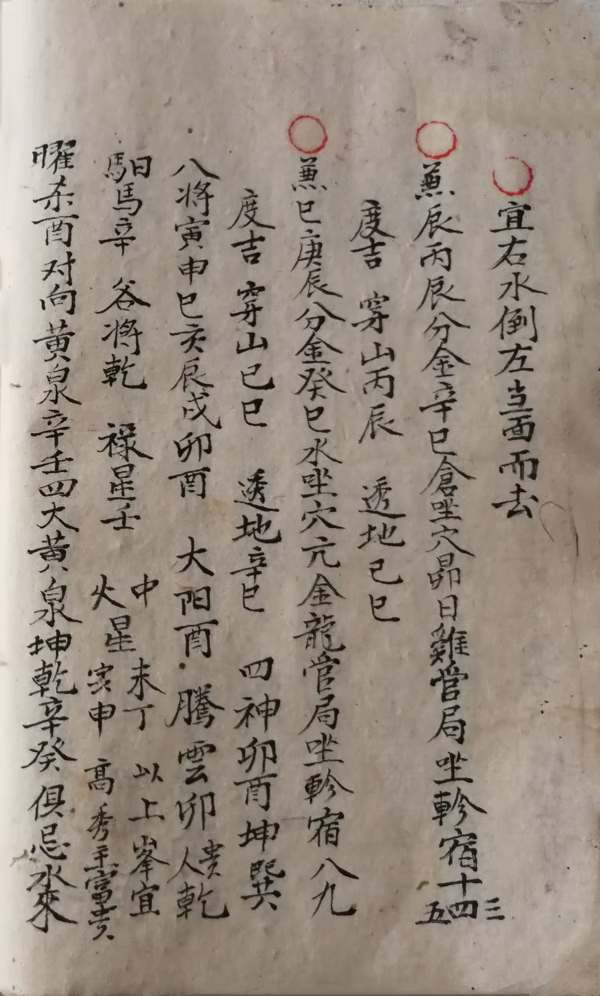 宜右水倒左当面而去
兼辰丙辰分金辛巳倉坐穴昴日雞管局坐軫宿十三四五
度吉 穿山丙辰 透地己巳
兼巳庚辰分金癸巳水坐穴亢金龍管局坐軫宿八九
度吉 穿山己巳 透地辛巳 四神卯酉坤巽
八将寅申巳亥辰戌卯酉 大阳酉 騰雲卯 貴人乾
馹馬辛 谷将乾 禄星壬 火星 中未丁 亥申 以上峯宜高秀主富贵
曜杀酉对向黄泉辛壬四大黄泉坤乾辛癸俱忌水來